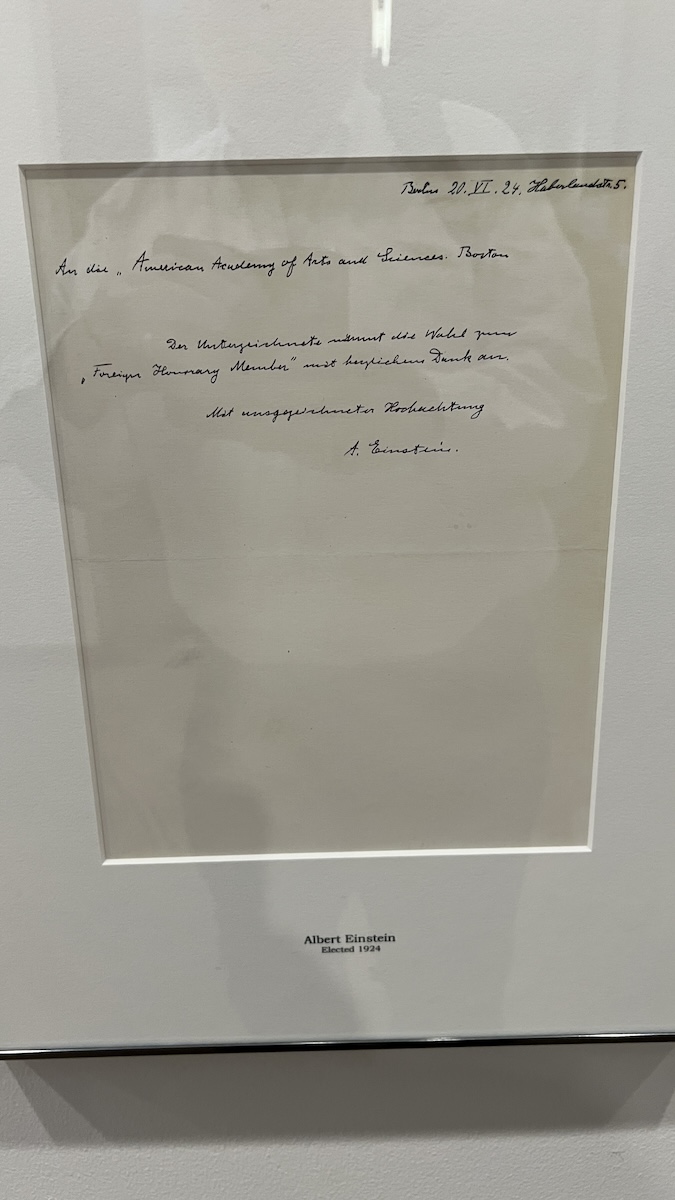 Berlin 20. VI. 24. Haberlandstr. 5.
An die „American Academy of Arts and Sciences. Boston
Der Unterzeichnete nimmt die Wahl zum
„Foreign Honorary Member" mit herzlichem Dank an.
Mit ausgezeichneter Hochachtung
A. Einstein.
Albert Einstein
Elected 1924